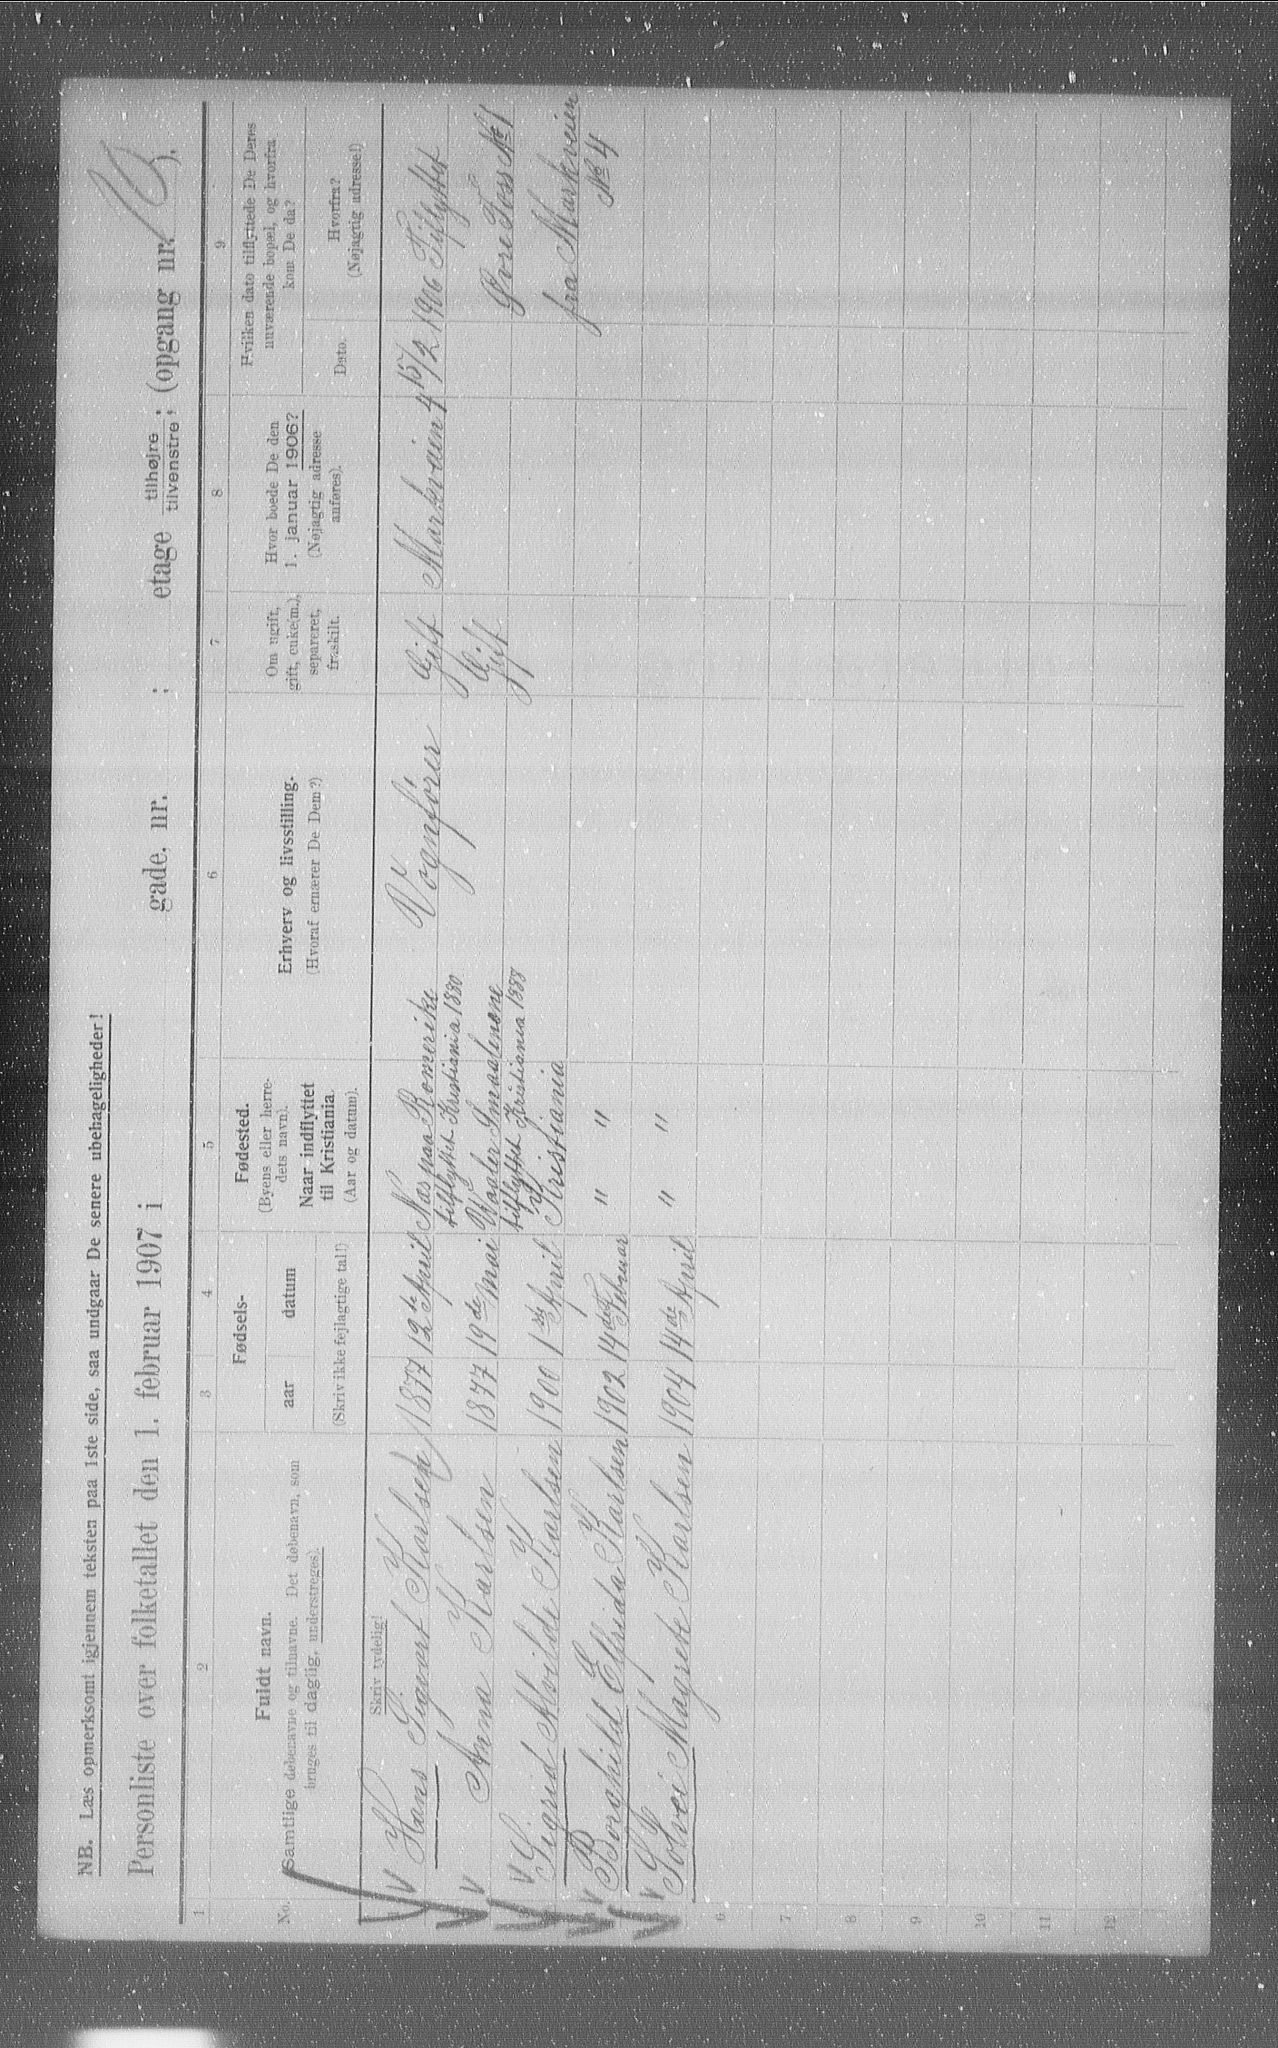 NB. Læs opmerksomt igjennem teksten paa 1ste side, saa undgaar De senere ubehageligheder!
Personliste over folketallet den 1. februar 1907 i gade, nr. ; etage tilhøjre / tilvenstre ; (opgang nr. ).
1 2 3 4 5 6 7 8 9
No.
Fuldt navn.
Samtlige døbenavne og tilnavne. Det døbenavn, som
bruges til daglig, understreges).
Skriv tydelig!
Fødsels-
aar datum
(Skriv ikke fejlagtige tal!)
Fødested.
(Byens eller herre-
dets navn).
Naar indflyttet
til Kristiania.
(Aar og datum).
Erhverv og livsstilling.
(Hvoraf ernærer De Dem?)
Om ugift,
gift, enke(m.),
separeret,
fraskilt.
Hvor boede De den
1. januar 1906?
(Nøjagtig adresse
anføres).
Hvilken dato tilflyttede De Deres
nuværende bopæl, og hvorfra
kom De da?
Dato.
Hvorfra?
(Nøjagtig adresse!)
V Hans Sigvart Karlsen 1877 12te April Næs paa Romerike Vognfører Gift Markveien 4 15/2 1906 Tilflyttet
tilflyttet Kristiania 1880
V Anna Karlsen 1877 19de Mai Vaaler Smaalenene Gift
tilflyttet Kristiania 1888
Foss No 1
V Sigrid Alvilde Karlsen 1900 1ste April Kristiania
fra Markveien
No 4
V Borghild Elfrida Karlsen 1902 14de Februar " "
V Solvei Magrete Karlsen 1904 14de April " "
6
7
8
9
10
11
12